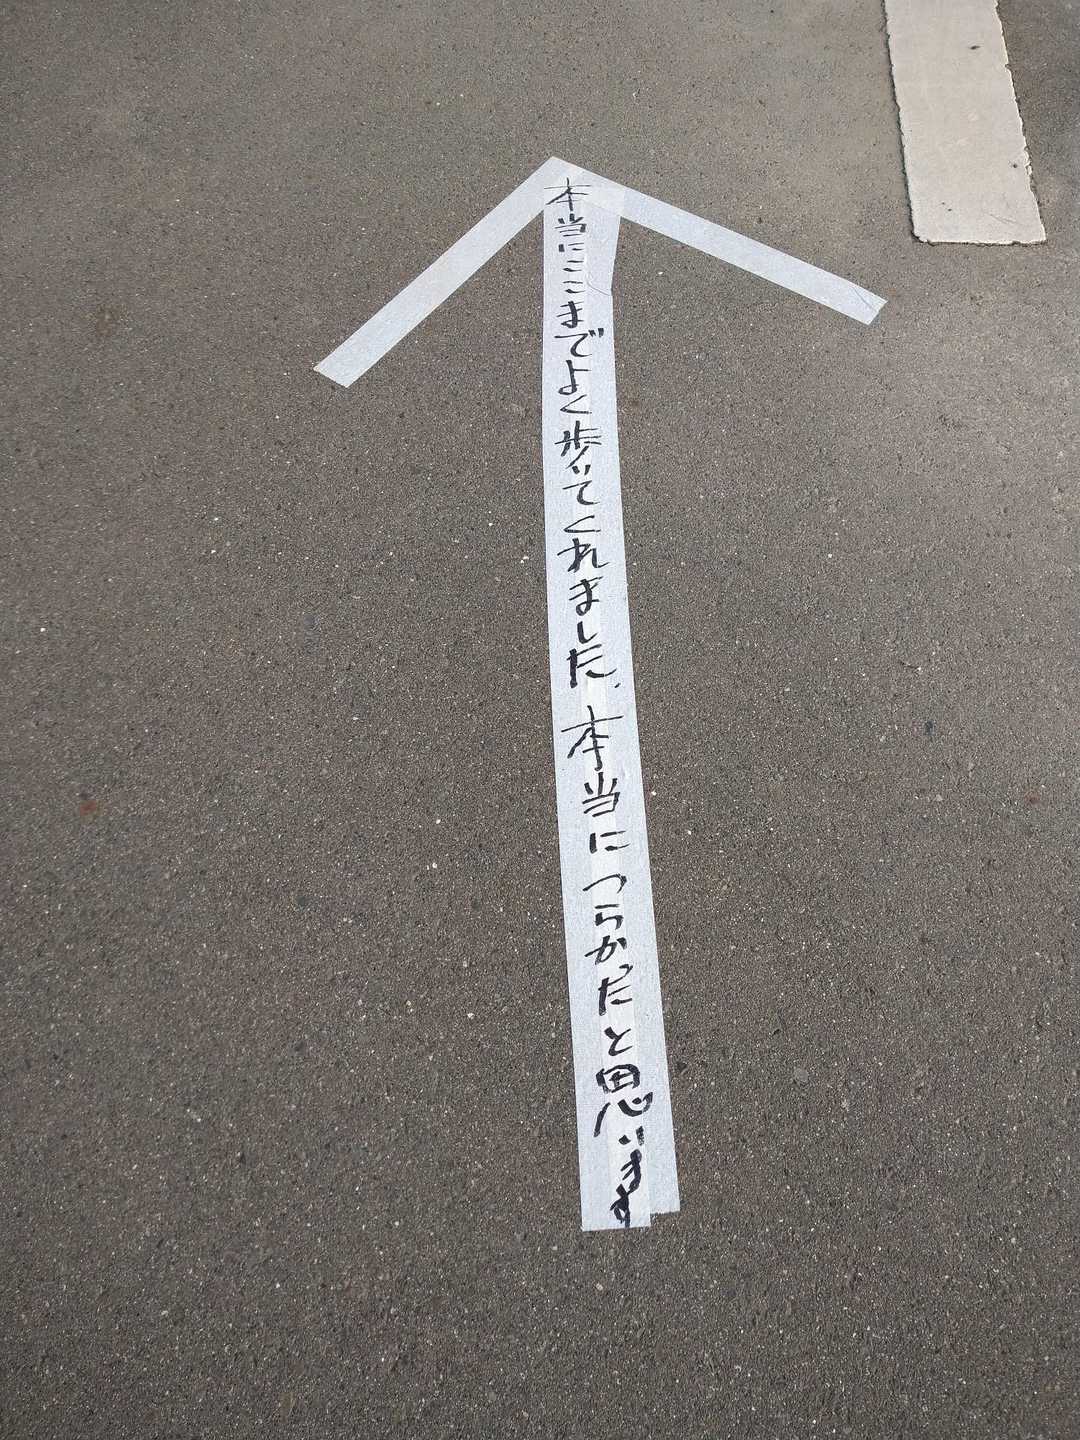 本当にここまでよく歩いてくれました、本当につらかったと思います